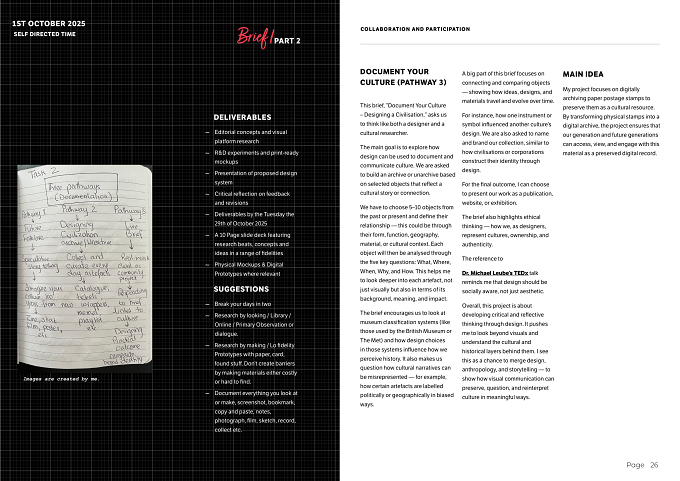 1ST OCTOBER 2025
SELF DIRECTED TIME
Brief/PART 2
DELIVERABLES
— Editorial concepts and visual
platform research
— R&D experiments and print-ready
mockups
— Presentation of proposed design
system
— Critical reflection on feedback
and revisions
— Deliverables by the Tuesday the
29th of October 2025
— A 10 Page slide deck featuring
research beats, concepts and
ideas in a range of fidelities
— Physical Mockups & Digital
Prototypes where relevant
SUGGESTIONS
— Break your days in two
— Research by looking / Library /
Online / Primary Observation or
dialogue.
— Research by making / Lo fidelity
Prototypes with paper, card,
found stuff. Don't create barriers
by making materials either costly
or hard to find.
— Document everything you look at
or make, screenshot, bookmark,
copy and paste, notes,
photograph, film, sketch, record,
collect etc.
Task 2
Free pathways
(Documentation)
Pathway 1 Pathway 2 Pathway 3
Future Designing Live
Civilization Brief
Images are created by me.
COLLABORATION AND PARTICIPATION
DOCUMENT YOUR
CULTURE (PATHWAY 3)
This brief, "Document Your Culture
– Designing a Civilisation," asks us
to think like both a designer and a
cultural researcher.
The main goal is to explore how
design can be used to document and
communicate culture. We are asked
to build an archive or unarchive based
on selected objects that reflect a
cultural story or connection.
We have to choose 5–10 objects from
the past or present and define their
relationship — this could be through
their form, function, geography,
material, or cultural context. Each
object will then be analysed through
the five key questions: What, Where,
When, Why, and How. This helps me
to look deeper into each artefact, not
just visually but also in terms of its
background, meaning, and impact.
The brief encourages us to look at
museum classification systems (like
those used by the British Museum or
The Met) and how design choices
in those systems influence how we
perceive history. It also makes us
question how cultural narratives can
be misrepresented — for example,
how certain artefacts are labelled
politically or geographically in biased
ways.
A big part of this brief focuses on
connecting and comparing objects
— showing how ideas, designs, and
materials travel and evolve over time.
For instance, how one instrument or
symbol influenced another culture's
design. We are also asked to name
and brand our collection, similar to
how civilisations or corporations
construct their identity through
design.
For the final outcome, I can choose
to present our work as a publication,
website, or exhibition.
The brief also highlights ethical
thinking — how we, as designers,
represent cultures, ownership, and
authenticity.
The reference to
Dr. Michael Leube's TEDx talk
reminds me that design should be
socially aware, not just aesthetic.
Overall, this project is about
developing critical and reflective
thinking through design. It pushes
me to look beyond visuals and
understand the cultural and
historical layers behind them. I see
this as a chance to merge design,
anthropology, and storytelling — to
show how visual communication can
preserve, question, and reinterpret
culture in meaningful ways.
MAIN IDEA
My project focuses on digitally
archiving paper postage stamps to
preserve them as a cultural resource.
By transforming physical stamps into a
digital archive, the project ensures that
our generation and future generations
can access, view, and engage with this
material as a preserved digital record.
Page 26